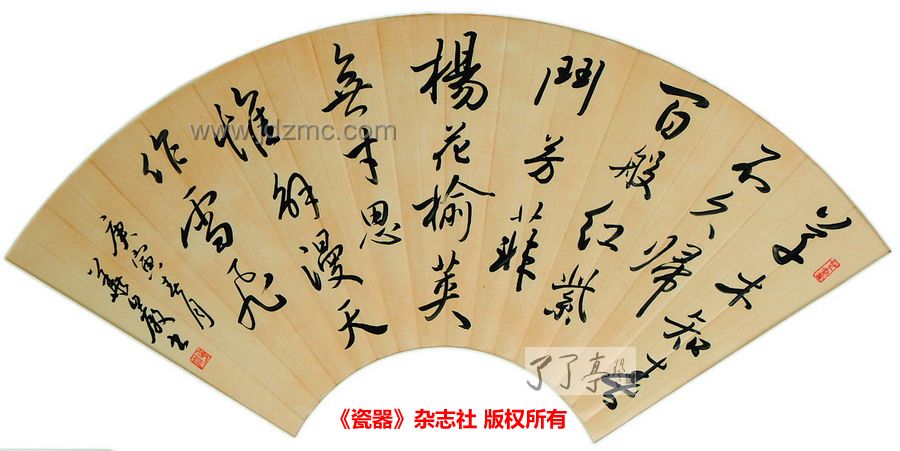 草木知春
不久歸
百般红紫
鬥芳菲
楊花榆荚
無才思
惟解漫天
作雪飛
庚寅春月
书
www.jdzmc.com
了了亭
《瓷器》杂志社 版权所有